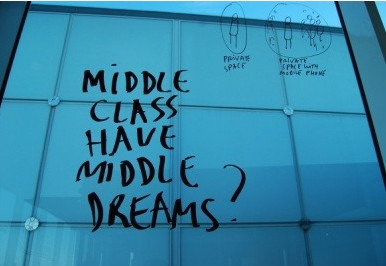 PRIVATE
SPACE
PRIVATE
SPACE WITH
MOBILE PHONE
MiDDLE
CLASS
HAVE
MIDDLE
DREAMS?